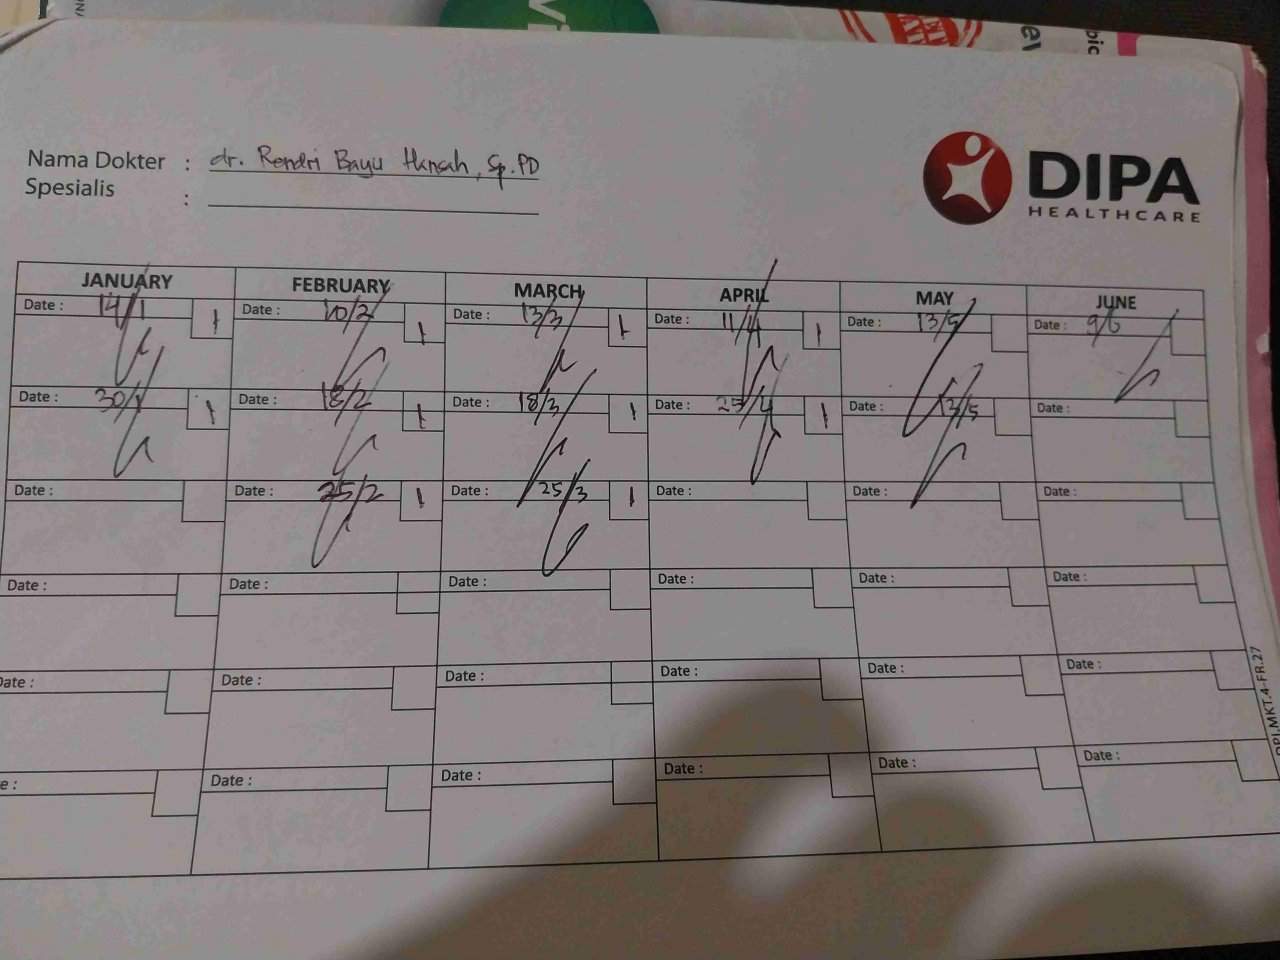 Nama Dokter : dr. Rendri Bayu Hansah, Sp.PD
Spesialis :
DIPA
HEALTHCARE
JANUARY FEBRUARY MARCH APRIL MAY JUNE
Date : 14/1 1 Date : 10/2 1 Date : 13/3 1 Date : 11/4 1 Date : 13/5 Date : 9/6
Date : 30/1 1 Date : 18/2 1 Date : 18/3 1 Date : 25/4 1 Date : 13/5 Date :
Date : Date : 25/2 1 Date : 25/3 1 Date : Date : Date :
Date : Date : Date : Date : Date : Date :
Date : Date : Date : Date : Date : Date :
e : Date : Date : Date : Date : Date :
MKT.4-FR.27